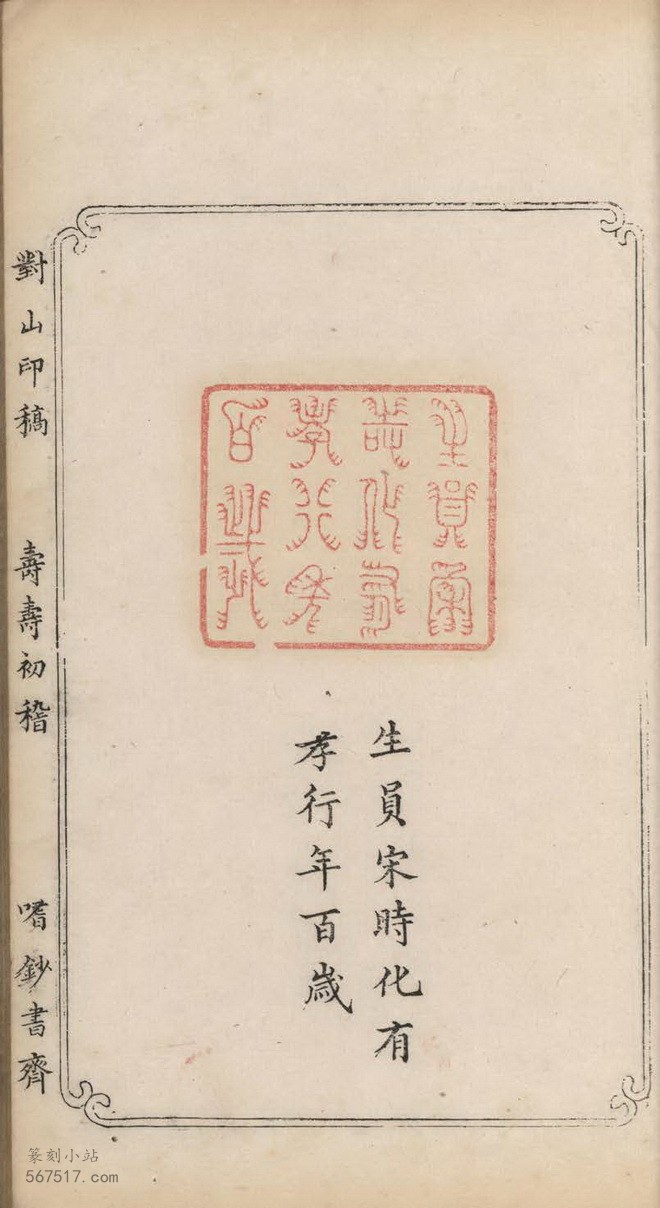 生員宋
時化有
孝行年
百歲
生員宋時化有
孝行年百歲
對山印稿 壽壽初稽 嗜鈔書齋
篆刻小站
567517.com